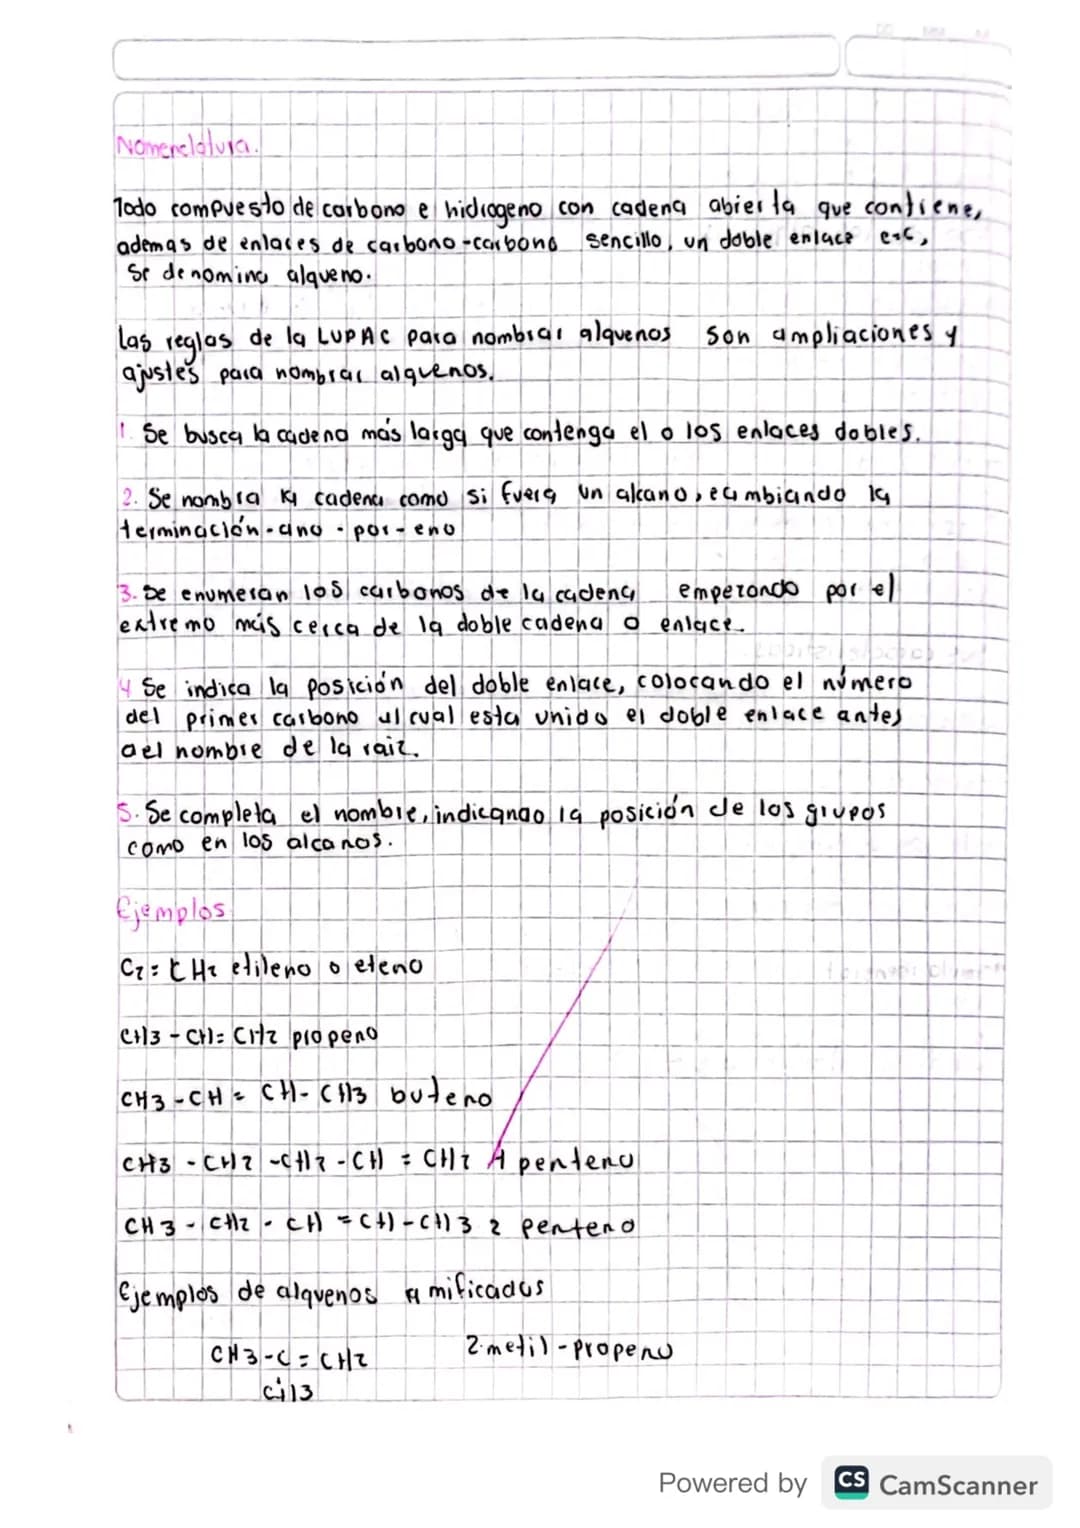 Nomenclatura.
Todo compuesto de carbono e hidrogeno con cadena abierta que contiene,
ademas de enlaces de carbono-carbono sencillo, un doble enlace c=c,
se denomina alqueno.
Las reglas de la LUPAC para nombrar alquenos son ampliaciones y
ajustes para nombrar alquenos.
1. Se busca la cadena más larga que contenga el o los enlaces dobles.
2. Se nombra la cadena como si fuera un alcano, cambiando la
terminación-ano - por-eno
3. Se enumeran los carbonos de la cadena emperando por el
extremo más cerca de la doble cadena o enlace.
4 Se indica la posición del doble enlace, colocando el número
del primer carbono al cual esta unido el doble enlace antes
del nombre de la raiz.
5. Se completa el nombre, indicando la posición de los grupos
como en los alcanos.
Ejemplos
C2 = CH2 etileno o eteno
CH3 - CH = CH2 propeno
CH3 - CH = CH - CH3 buteno
CH3 - CH2 - CH2 - CH = CH2 1 penteno
CH3 - CH2 - CH = CH - CH3 2 penteno
Ejemplos de alquenos ramificados
CH3 - C = CH2 2-metil-propeno
CH3
Powered by CS CamScanner